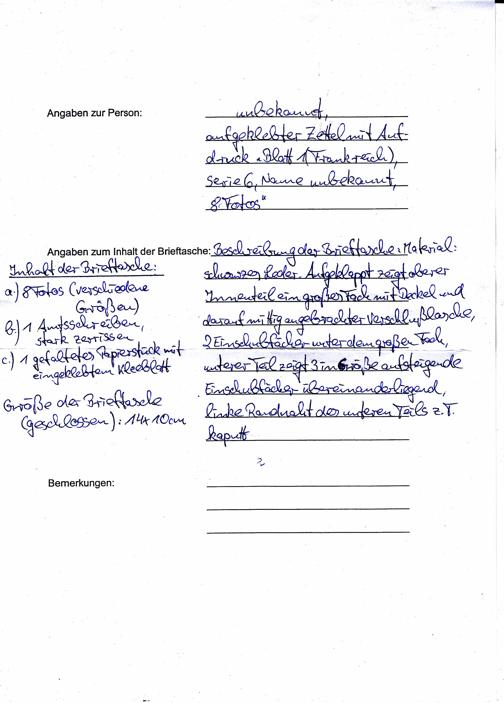 Angaben zur Person:
unbekannt,
aufgeklebter Zettel mit Auf-
druck "Blatt 1 (Frankreich),
Serie 6, Name unbekannt,
8 Fotos"
Angaben zum Inhalt der Brieftasche: Beschreibung der Brieftasche: Material:
schwarzes Leder. Aufgeklappt zeigt oberer
Innenteil ein großes Fach mit Deckel und
darauf mittig angebrachter Verschlußlasche,
2 Einschubfächer unter dem großen Fach,
unterer Teil zeigt 3 in Größe aufsteigende
Einschubfächer übereinanderliegend,
linke Randnaht des unteren Teils z.T.
kaputt
Inhalt der Brieftasche:
a.) 8 Fotos (verschiedene
Größen)
b.) 1 Amtsschreiben,
stark zerrissen
c.) 1 gefaltetes Papierstück mit
eingeklebtem Kleeblatt
Größe der Brieftasche
(geschlossen): 14x10cm
Bemerkungen: